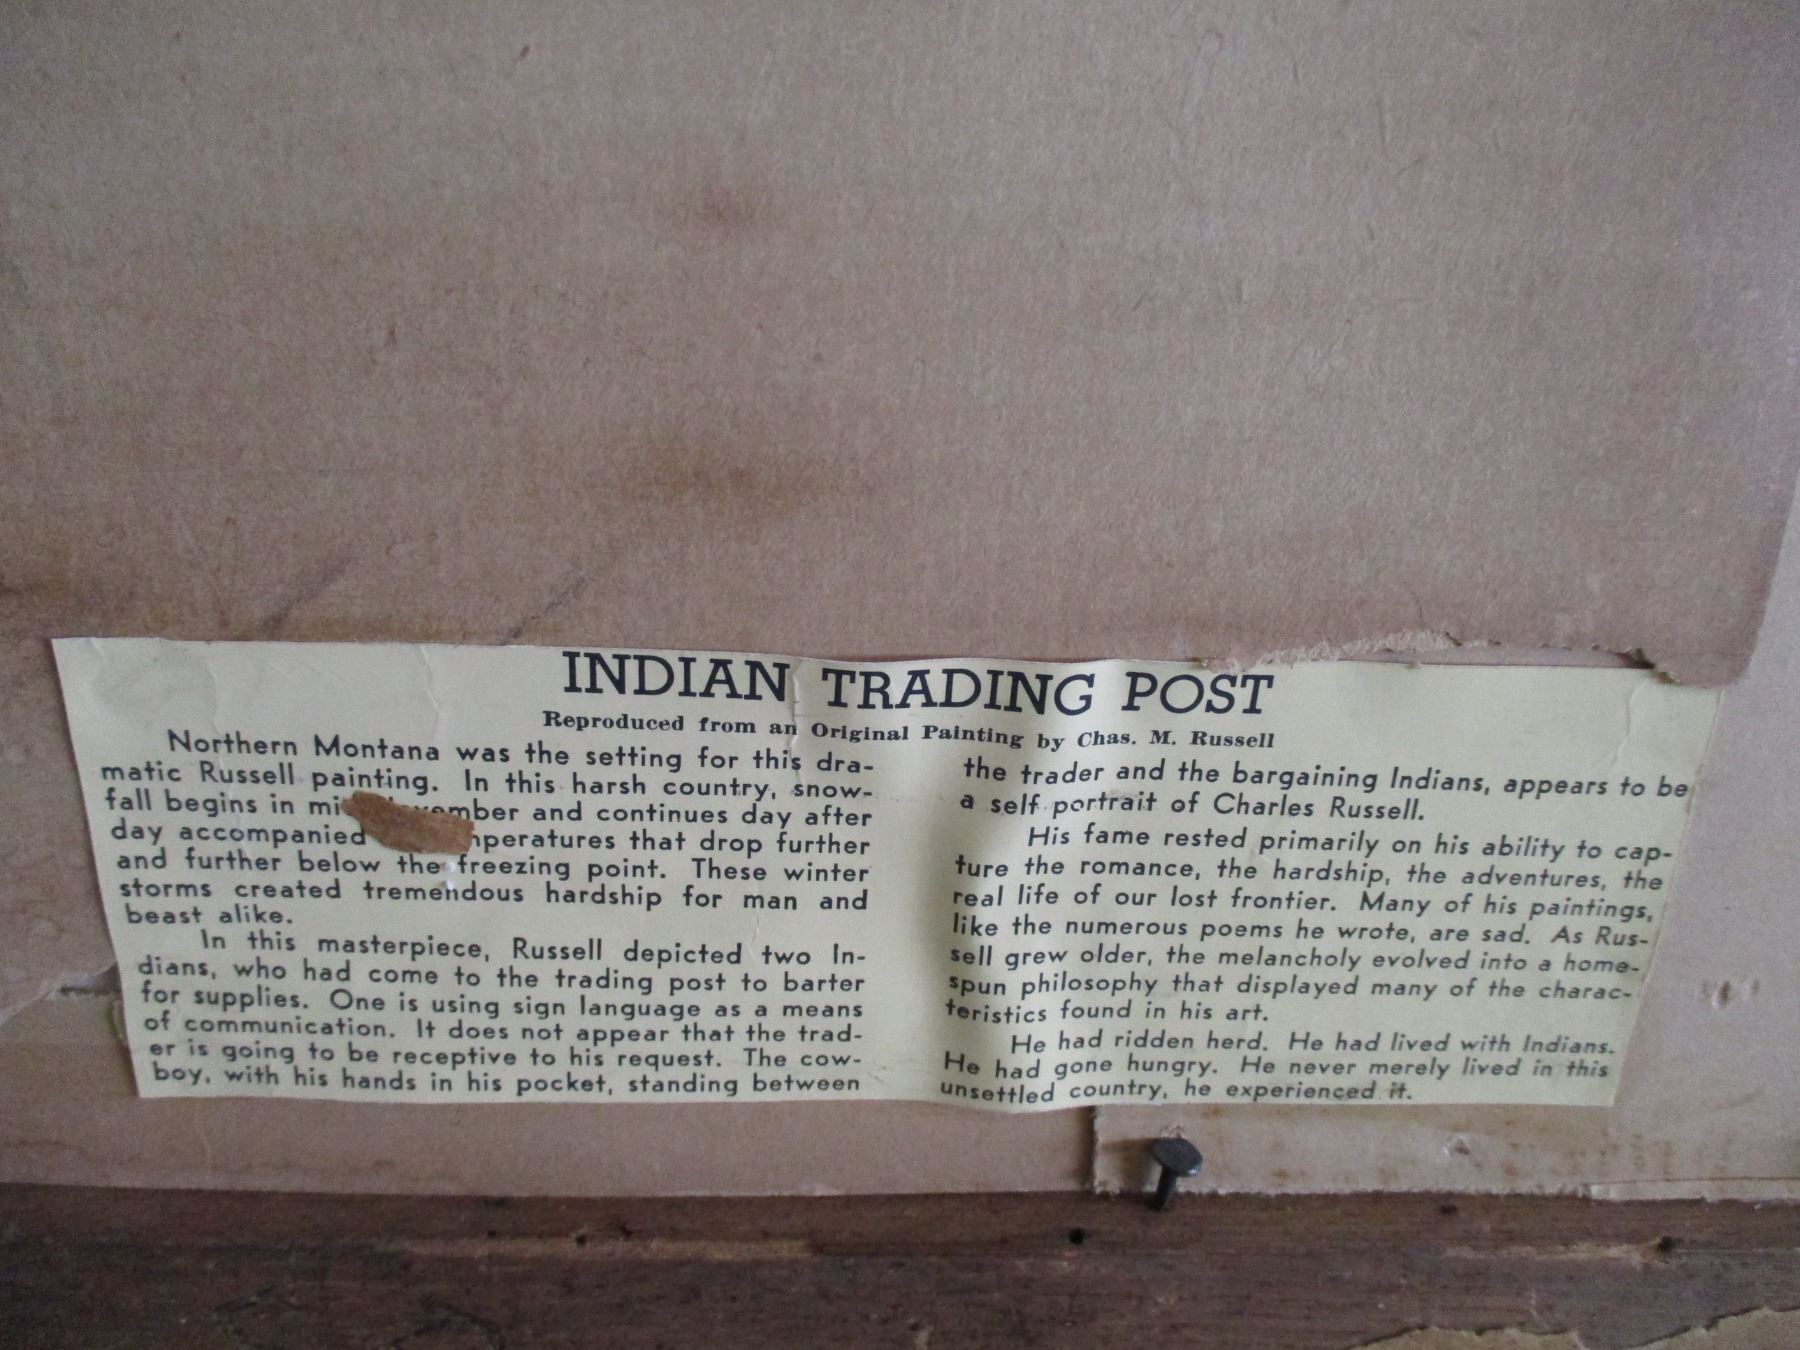 INDIAN TRADING POST
Reproduced from an Original Painting by Chas. M. Russell
Northern Montana was the setting for this dra-
matic Russell painting. In this harsh country, snow-
fall begins in and continues day after
day accompanied that drop further
and further below the freezing point. These winter
storms created tremendous hardship for man and
beast alike.
In this masterpiece, Russell depicted two In-
dians, who had come to the trading post to barter
for supplies. One is using sign language as a means
of communication. It does not appear that the trad-
er is going to be receptive to his request. The cow-
boy, with his hands in his pocket, standing between
the trader and the bargaining Indians, appears to be
a self portrait of Charles Russell.
His fame rested primarily on his ability to cap-
ture the romance, the hardship, the adventures, the
real life of our lost frontier. Many of his paintings,
like the numerous poems he wrote, are sad. As Rus-
sell grew older, the melancholy evolved into a home-
spun philosophy that displayed many of the charac-
teristics found in his art.
He had ridden herd. He had lived with Indians.
He had gone hungry. He never merely lived in this
unsettled country, he experienced it.